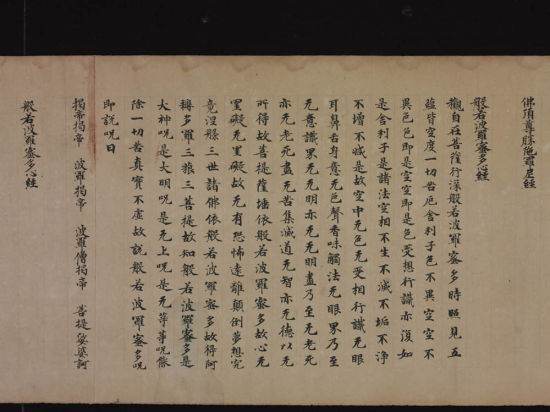 佛頂尊勝陁羅尼經
般若波羅蜜多心經
觀自在菩薩行深般若波羅蜜多時照見五
蘊皆空度一切苦厄舍利子色不異空空不
異色色即是空空即是色受想行識亦復如
是舍利子是諸法空相不生不滅不垢不淨
不增不減是故空中无色无受想行識无眼
耳鼻舌身意无色聲香味觸法无眼界乃至
无意識界无无明亦无无明盡乃至无老死
亦无老死盡无苦集滅道无智亦无德以无
所得故菩提薩埵依般若波羅蜜多故心无
罣礙无罣礙故无有恐怖遠離顛倒夢想究
竟涅槃三世諸佛依般若波羅蜜多故得阿
耨多羅三藐三菩提故知般若波羅蜜多是
大神呪是大明呪是无上呪是无等等呪能
除一切苦真實不虛故說般若波羅蜜多呪
即說呪曰
揭帝揭帝 波羅揭帝 波羅僧揭帝 菩提娑婆訶
般若波羅蜜多心經